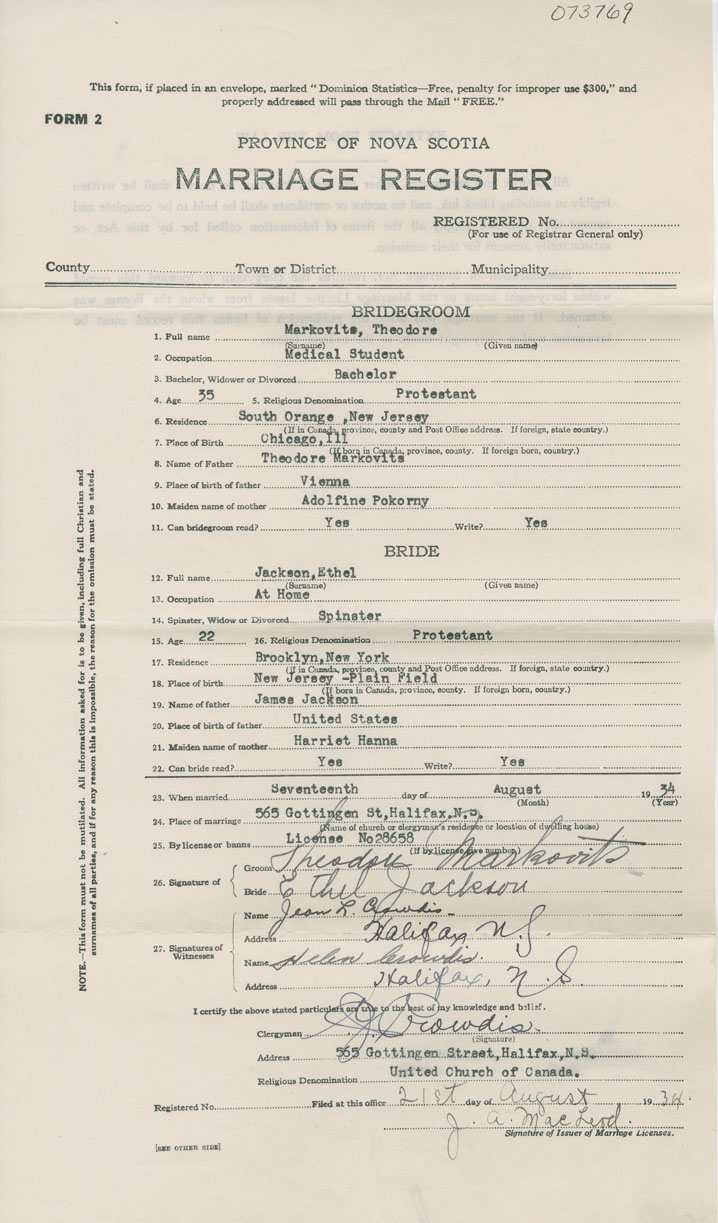 073769
This form, if placed in an envelope, marked "Dominion Statistics—Free, penalty for improper use $300," and
properly addressed will pass through the Mail "FREE."
FORM 2
PROVINCE OF NOVA SCOTIA
MARRIAGE REGISTER
REGISTERED No.
(For use of Registrar General only)
County Town or District Municipality
BRIDEGROOM
1. Full name Markovits, Theodore
(Surname) (Given name)
2. Occupation Medical Student
3. Bachelor, Widower or Divorced Bachelor
4. Age 35 5. Religious Denomination Protestant
6. Residence South Orange ,New Jersey
(If in Canada, province, county and Post Office address. If foreign, state country.)
7. Place of Birth Chicago,Ill
(If born in Canada, province, county. If foreign born, country.)
8. Name of Father Theodore Markovits
9. Place of birth of father Vienna
10. Maiden name of mother Adolfine Pokorny
11. Can bridegroom read? Yes Write? Yes
BRIDE
12. Full name Jackson,Ethel
(Surname) (Given name)
13. Occupation At Home
14. Spinster, Widow or Divorced Spinster
15. Age 22 16. Religious Denomination Protestant
17. Residence Brooklyn,New York
(If in Canada, province, county and Post Office address. If foreign, state country.)
18. Place of birth New Jersey -Plain Field
(If born in Canada, province, county. If foreign born, country.)
19. Name of father James Jackson
20. Place of birth of father United States
21. Maiden name of mother Harriet Hanna
22. Can bride read? Yes Write? Yes
23. When married Seventeenth day of August 1934
(Month) (Year)
24. Place of marriage 565 Gottingen St,Halifax,N.S.
(Name of church or clergyman's residence or location of dwelling house)
25. By license or banns License No28658
(If by license, give number)
26. Signature of
Groom Theodore Markovits
Bride Ethel Jackson
27. Signatures of Witnesses
Name Jean L. Crowdis
Address Halifax N.S.
Name Helen Crowdis.
Address Halifax, N S
I certify the above stated particulars are true to the best of my knowledge and belief.
Clergyman Crowdis.
(Signature)
Address 565 Gottingen Street,Halifax,N.S.
Religious Denomination United Church of Canada.
Registered No. Filed at this office 21st day of August 1934.
J. A. MacLeod.
Signature of Issuer of Marriage Licenses.
[SEE OTHER SIDE]
NOTE.—This form must not be mutilated. All information asked for is to be given, including full Christian and
surnames of all parties, and if for any reason this is impossible, the reason for the omission must be stated.